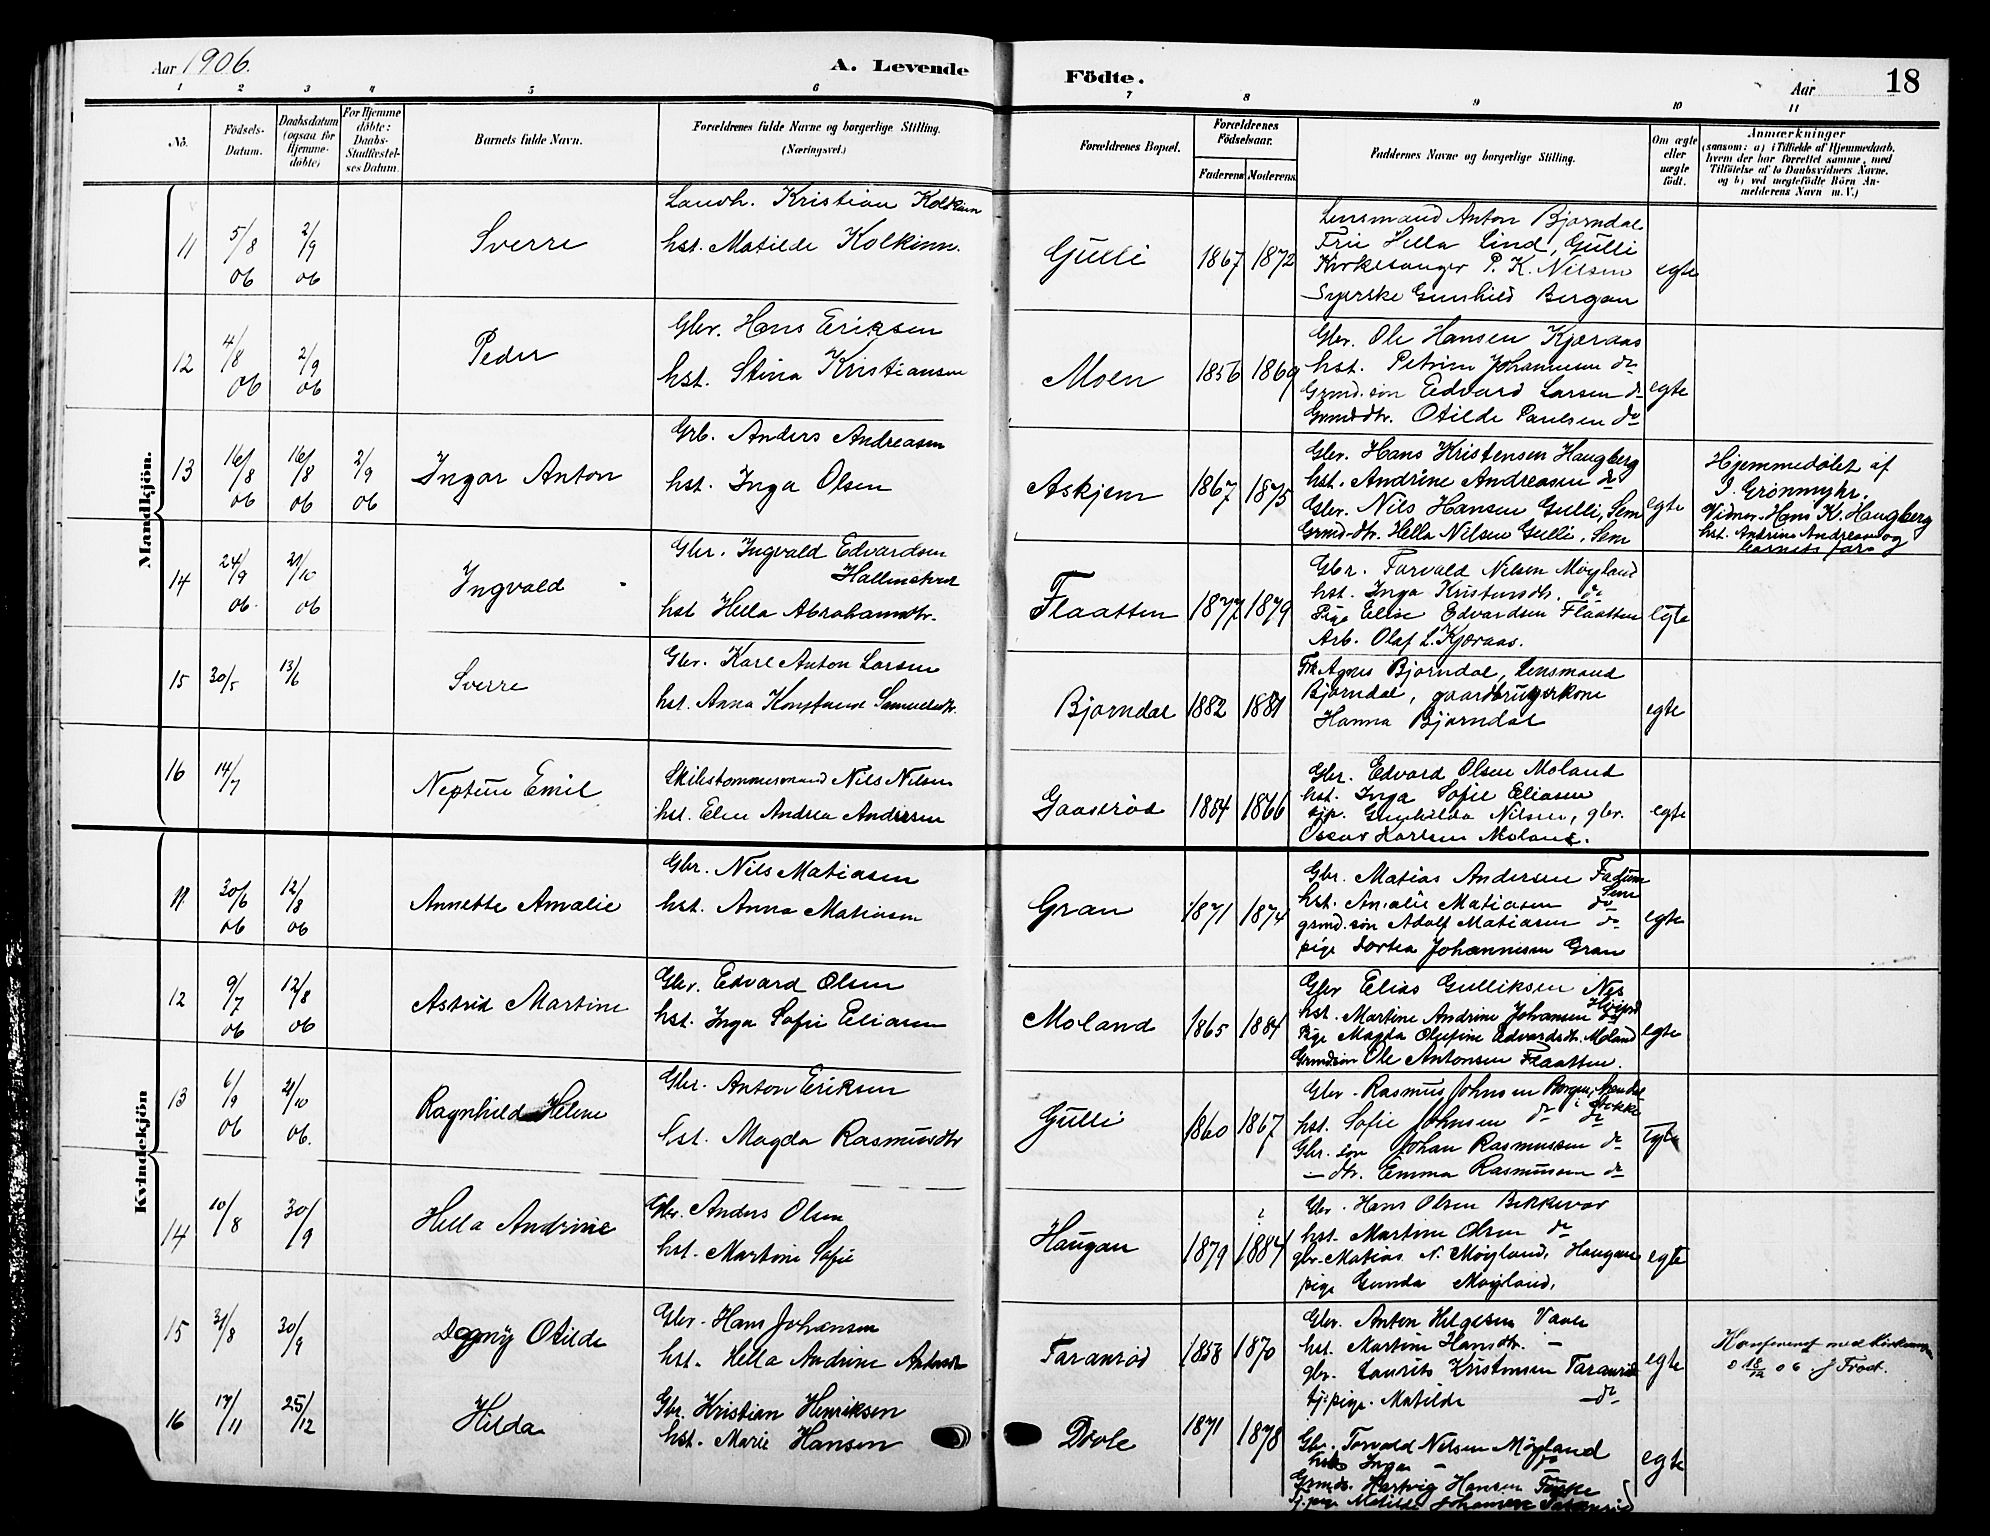 Aar 1906.
A. Levende
Födte.
Aar
18
1 2 3 4 5 6 7 8 9 10 11
No.
Födsels-Datum.
Daabsdatum (ogsaa for Hjemme-döbte)
For Hjemme döbte: Daabs-Stadfæstelses Datum.
Barnets fulde Navn.
Forældrenes fulde Navne og borgerlige Stilling. (Næringsvei.)
Forældrenes Bopæl.
Forældrenes Födselsaar.
Faderens
Moderens
Faddernes Navne og borgerlige Stilling.
Om ægte eller uægte födt.
Anmærkninger
(saasom: a) i Tilfælde af Hjemmedaab, hvem der har forrettet samme, med Tilföielse af to Daabsvidners Navne. og b) ved uægtefödte Börn Anmelderens Navn m. V.)
Mandkjön.
11 5/8 06 2/9 06 Sverre
Landh. Kristian Kolkinn
hst. Matilde Kolkinn.
Gulli 1867 1872
Lensmand Anton Bjørndal
Frü Hella Lind, Gulli
Kirkesanger P. K. Nilsen
Syerske Gunhild Bergan
egte
12 4/8 06 2/9 06 Peder
Gbr. Hans Eriksen
hst. Stina Kristiansen
Moen 1856 1869
Gbr. Ole Hansen Kjæraas
hst. Petrine Johannesen do
Grmd. søn Edvard Larsen do
Grmd.dtr. Otilde Paulsen do
egte
13 16/8 06 16/8 06 2/9 06 Ingar Anton
Grb. Anders Andreasen
hst. Inga Olsen
Askjem 1867 1875
Gbr. Hans Kristensen Haugberg
hst. Andrine Andreasen do
Gbr. Nils Hansen Gulli, Sem
Grmd-dtr. Hella Nilsen Gulli, Sem
egte
Hjemmedøbt af
J. Grønmyhr.
Vidner. Hans K. Haugberg
hst. Andrine Andreasen og
barnets far
14 24/9 06. 21/10 06 Ingvald
Gbr. Ingvald Edvardsen
hst Hella Abrahamdtr.
Flaatten 1877 1879
Gbr. Torvald Nilsen Møyland
hst. Inga Kristensdtr. do
Pige Elise Edvardsen Flaatten
Arb. Olaf L. Kjæraas.
egte
15 30/5 13/6 Sverre
Gbr. Karl Anton Larsen
hst. Anna Konstanse Samuelsdtr.
Bjørndal 1882 1881
Frk Agnes Bjørndal, Lensmand
Bjørndal, gaardbrugerkone
Hanna Bjørndal
egte
16 14/7 Neptun Emil
Skibstømmermand Nils Nilsen
hst. Elen Andrea Andersen
Gaaserød 1884 1866
Gbr. Edvard Olsen Moland
hst. Inga Sofie Eliasen
Gunhilda Nilsen, gbr.
Oscar Karlsen Moland.
egte
Kvindekjön
11 30/6 06 12/8 06 Annette Amalie
Gbr. Nils Matiasen
hst. Anna Matiasen
Gran 1871 1874
Gbr. Matias Andersen Fadum
Sem
hst. Amalie Matiasen do
grmd. søn Adolf Matiasen do
pige Dortea Johannesen Gran
egte
12 9/7 06 12/8 06 Astrid Martine
Gbr. Edvard Olsen
hst. Inga Sofie Eliasen
Moland 1865 1884
Gbr Elias Gulliksen Nes
hst. Martine Andrine Johansen do
Pige Magda Olufine Edvardsdtr. Moland
Grmdsøn Ole Antonsen Flaatten.
egte
13 6/9 06 21/10 06. Ragnhild Helene
Gbr. Anton Eriksen
hst. Magda Rasmusdtr
Gulli 1860 1867
Gbr Rasmus Johnsen Borgen, Arendal
i Stokke
hst. Sofie Johnsen do do
Gbr. søn Johan Rasmussen do
— dtr. Emma Rasmussen do
Egte
14 10/8 30/9 Hella Andrine
Gbr. Anders Olsen
hst. Martine Sofie
Haugan 1879 1884
Gbr. Hans Olsen Bekkevar
hst. Martine Olsen do
gbr. Matias N. Møyland, Haugan
pige Gunda Møyland,
egte
15 31/8 30/9 Dagny Otilde
Gbr. Hans Johansen
hst. Hella Andrine
Taranrød 1858 1870
Gbr. Anton Helgesen
hst. Martine Hansdtr. —
gbr. Laurits Kristensen Taranrød
tj. pige. Matilde — do
egte
Konfereret med kirkeboken
18/12 06 J Frost.
16 17/11 25/12 Hilda
Gbr. Kristian Henriksen
hst. Marie Hansen
Døvle 1871 1878
Gbr. Torvald Nilsen Møyland
hst Inga - do
Grmds. Hartvig Hansen
tj. pige Matilde Johansen Taranrød
egte